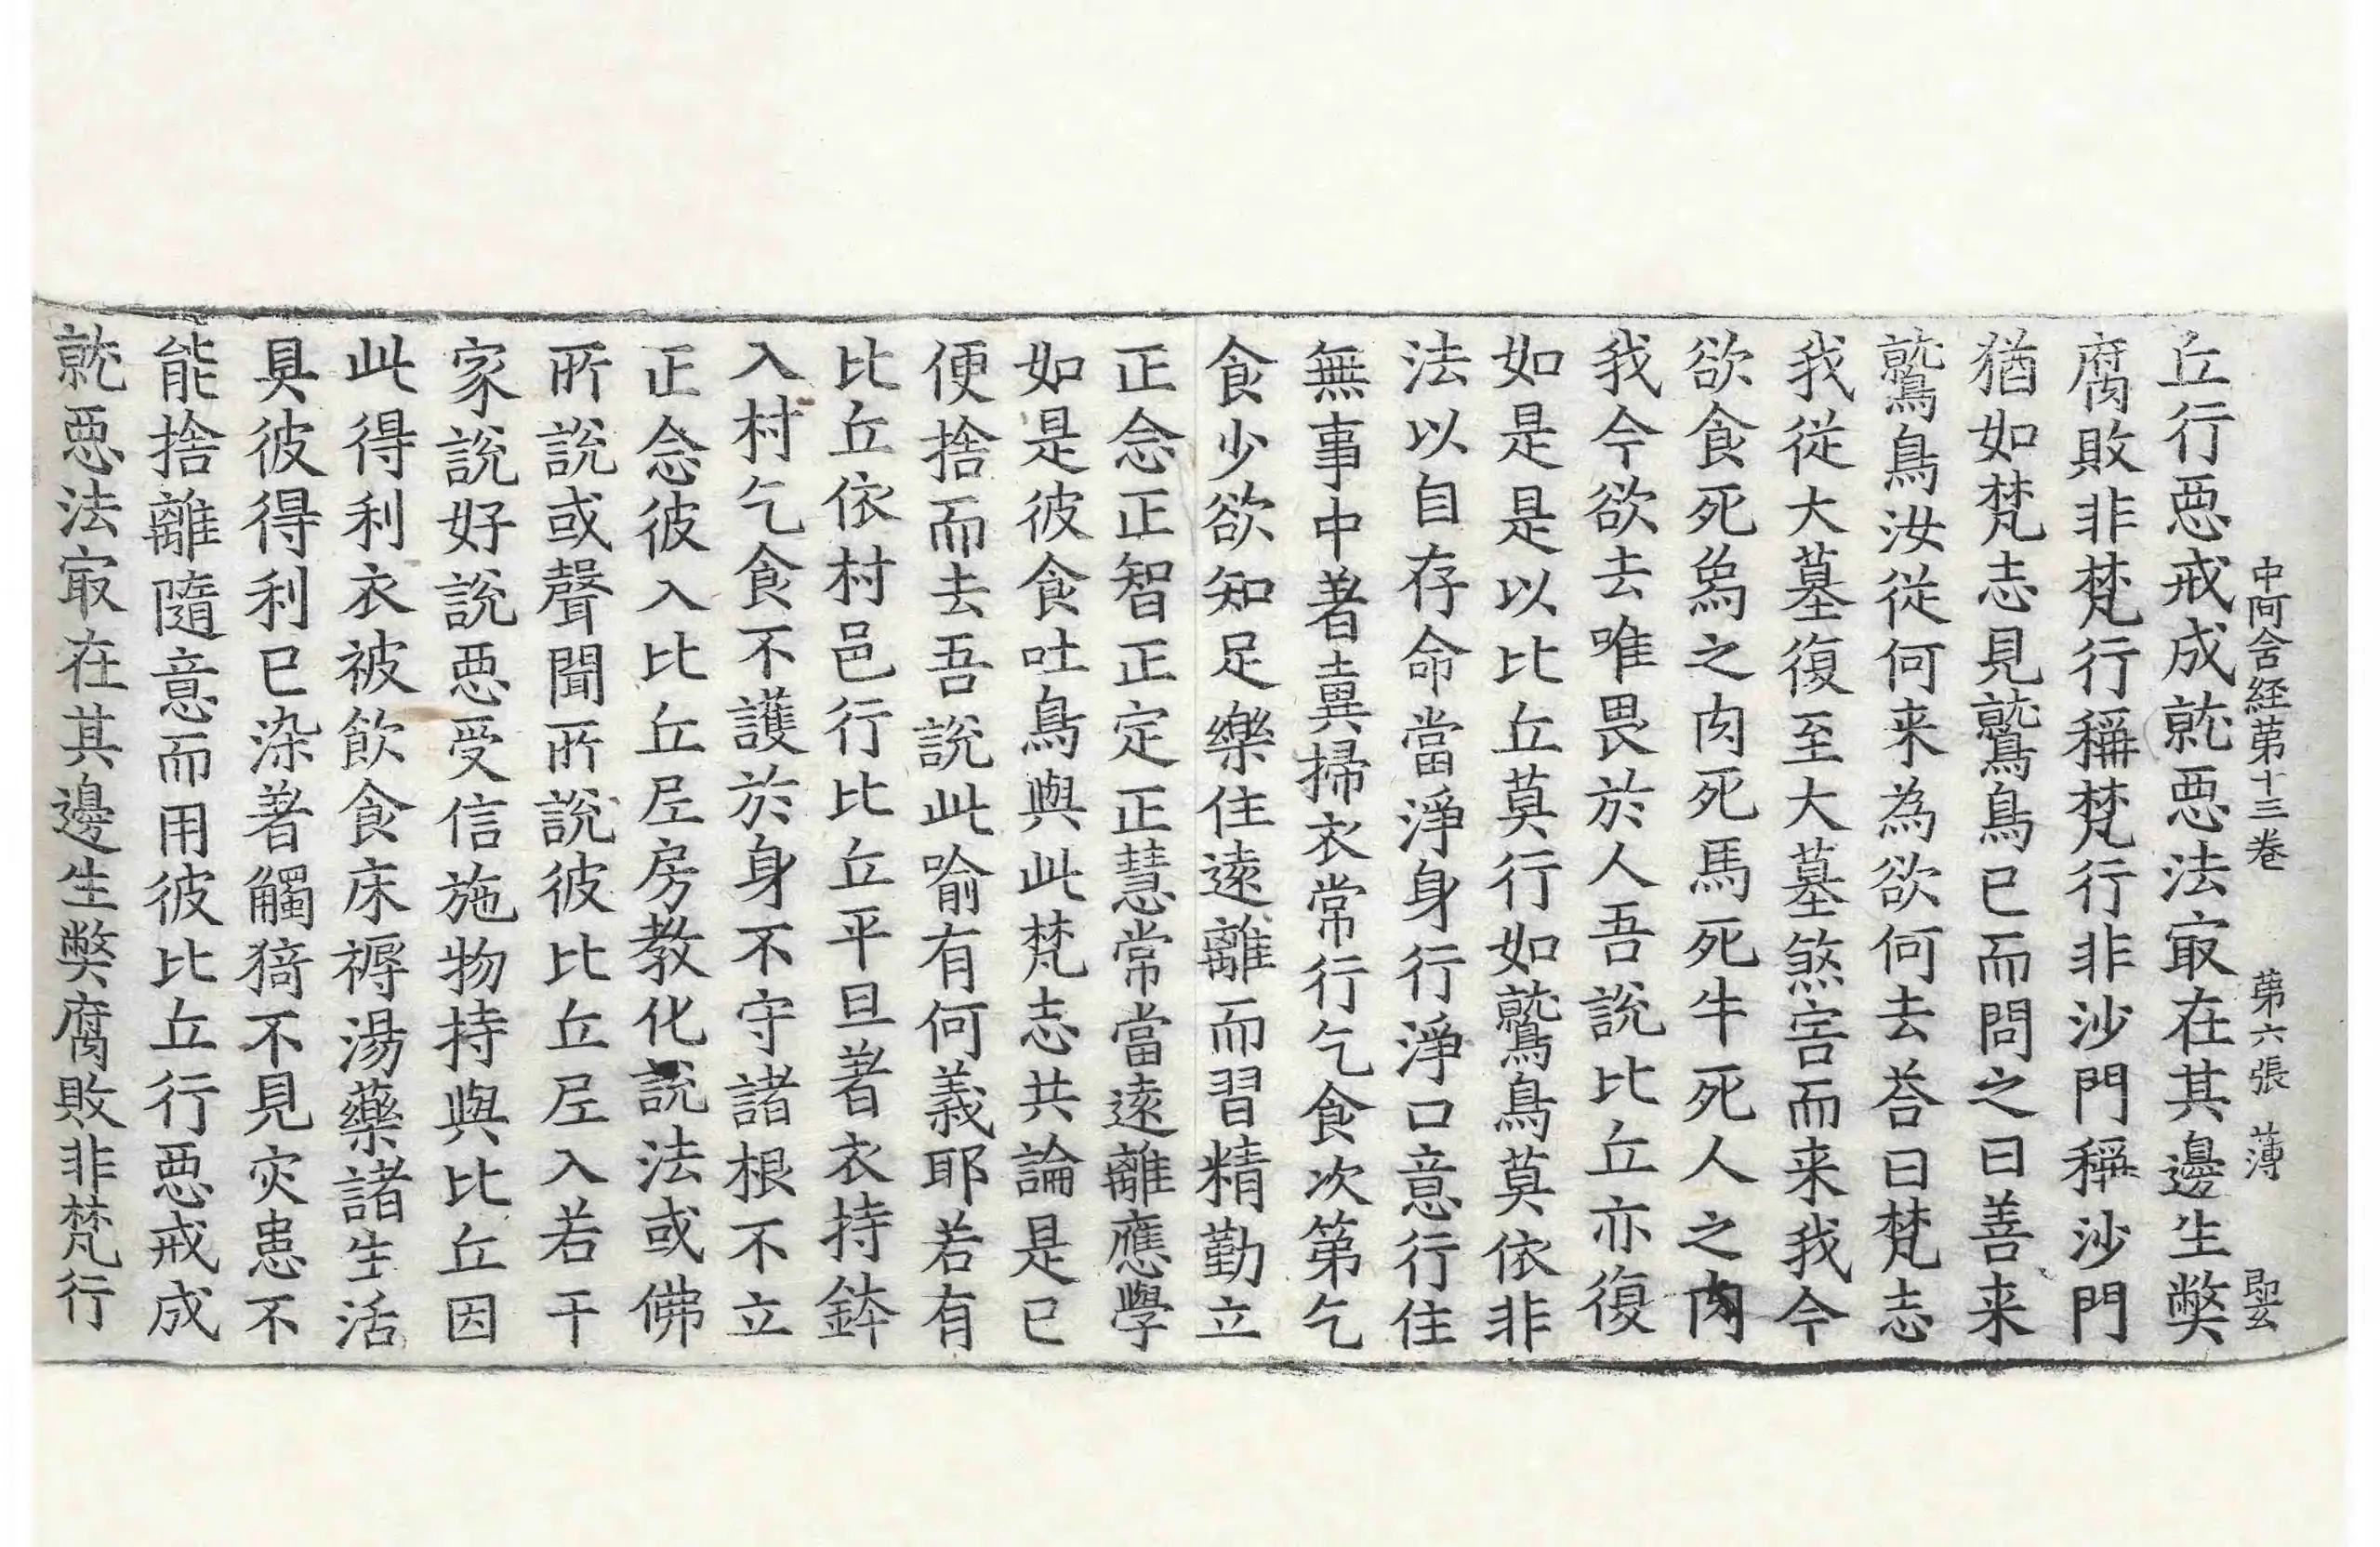 中阿含経苐十三巻 苐六張 薄 㔻
丘行惡戒成就惡法冣在其邊生弊
腐敗非梵行稱梵行非沙門稱沙門
猶如梵志見鷲鳥已而問之曰善来
鷲鳥汝從何来為欲何去荅曰梵志
我從大墓復至大墓煞害而来我今
欲食死烏之肉死馬死牛死人之肉
我今欲去唯畏於人吾說比丘亦復
如是是以比丘莫行如鷲鳥莫依非
法以自存命當淨身行淨口意行住
無事中著糞掃衣常行乞食次第乞
食少欲知足樂住遠離而習精勤立
正念正智正定正慧常當遠離應學
如是彼食吐鳥與此梵志共論是已
便捨而去吾說此喻有何義耶若有
比丘依村邑行比丘平旦著衣持鉢
入村乞食不護於身不守諸根不立
正念彼入比丘𡱈房教化說法或佛
所說或聲聞所說彼比丘𡱈入若干
家說好說惡受信施物持與比丘因
此得利衣被飲食床褥湯藥諸生活
具彼得利已染著觸猗不見灾患不
能捨離隨意而用彼比丘行惡戒成
就惡法冣在其邊生弊腐敗非梵行